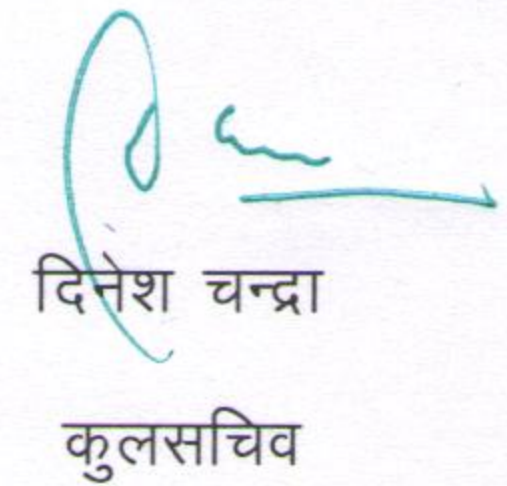 दिनेश चन्द्रा
कुलसचिव